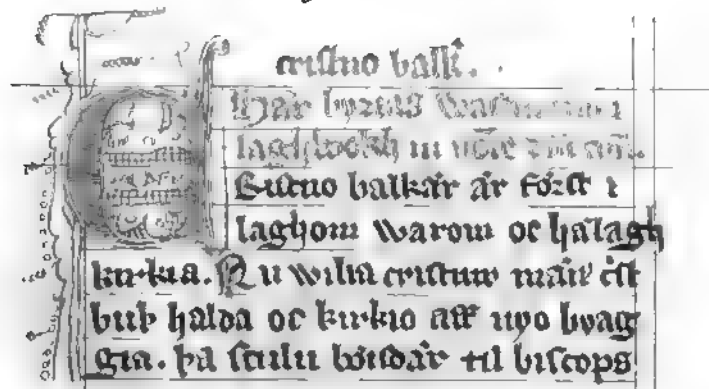 cristno balk̅.
Hær byriæs
laghbokin
Cristno balkær ær först i
laghom warom oc hælagh
kirkia. Nu wilia cristnir mæn cst
buþ halda oc kirkio aff nyo byag
gia. þa sculu böndær til biscops